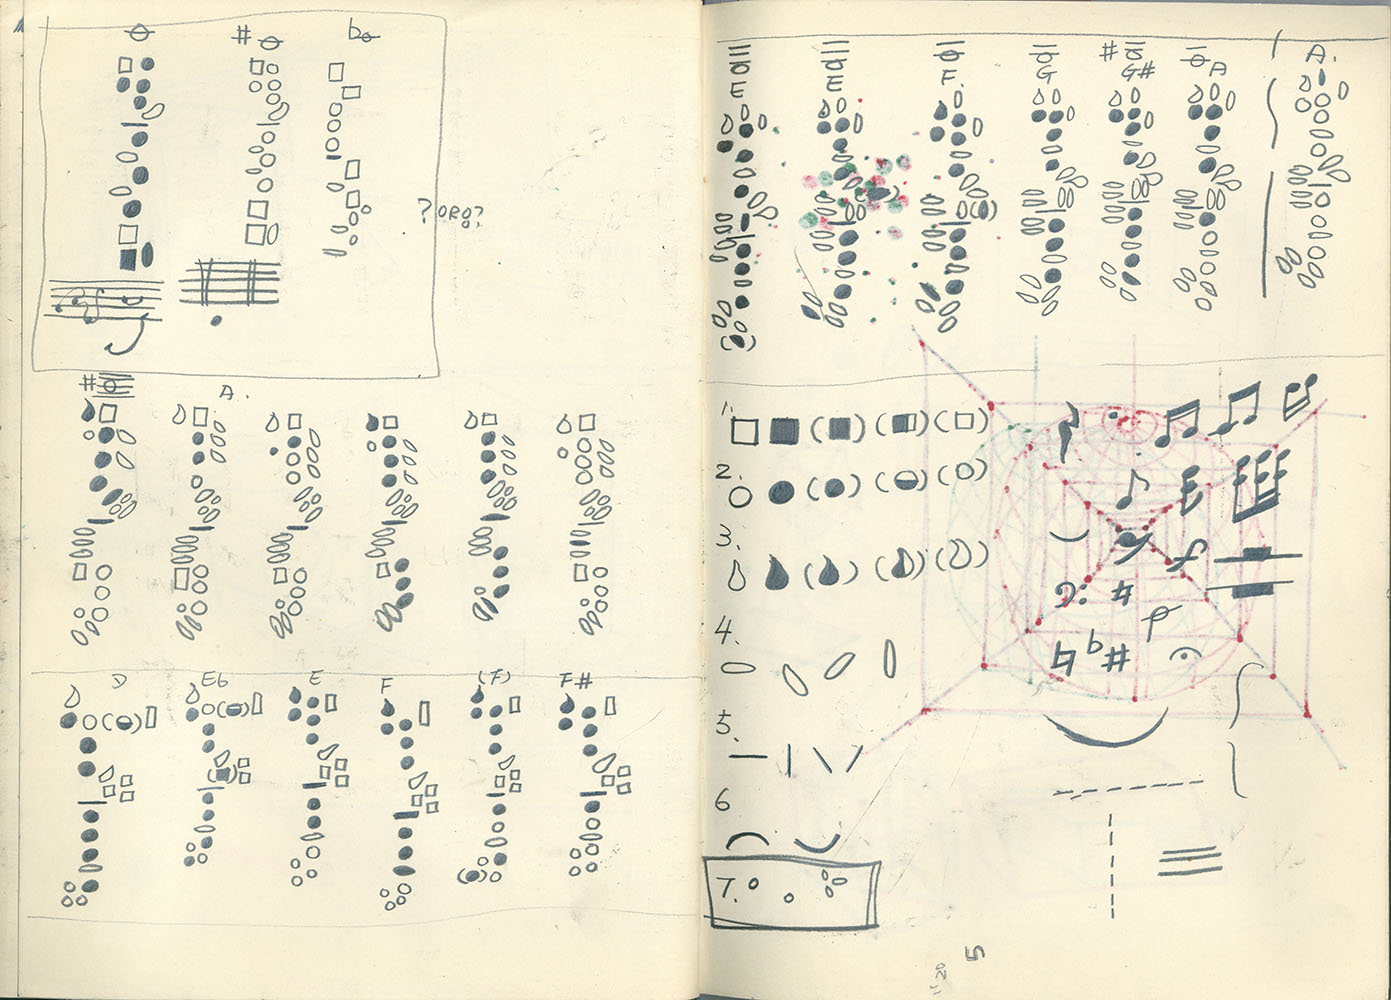 ?ORO?
A.
D Eb E F (F) F#
E E F G G# A A.
1.
2.
3.
4.
5.
6
7.
5